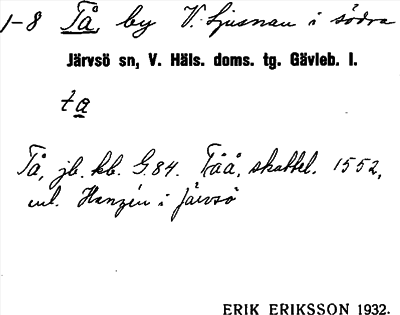 1-8 Tå, by V. Ljusnan i södra
Järvsö sn, V. Häls. doms. tg. Gävleb. l.
ta
Tå, jb. kb. G.84. Tåå, skattel. 1552,
enl. Hanzén i Järvsö
ERIK ERIKSSON 1932.